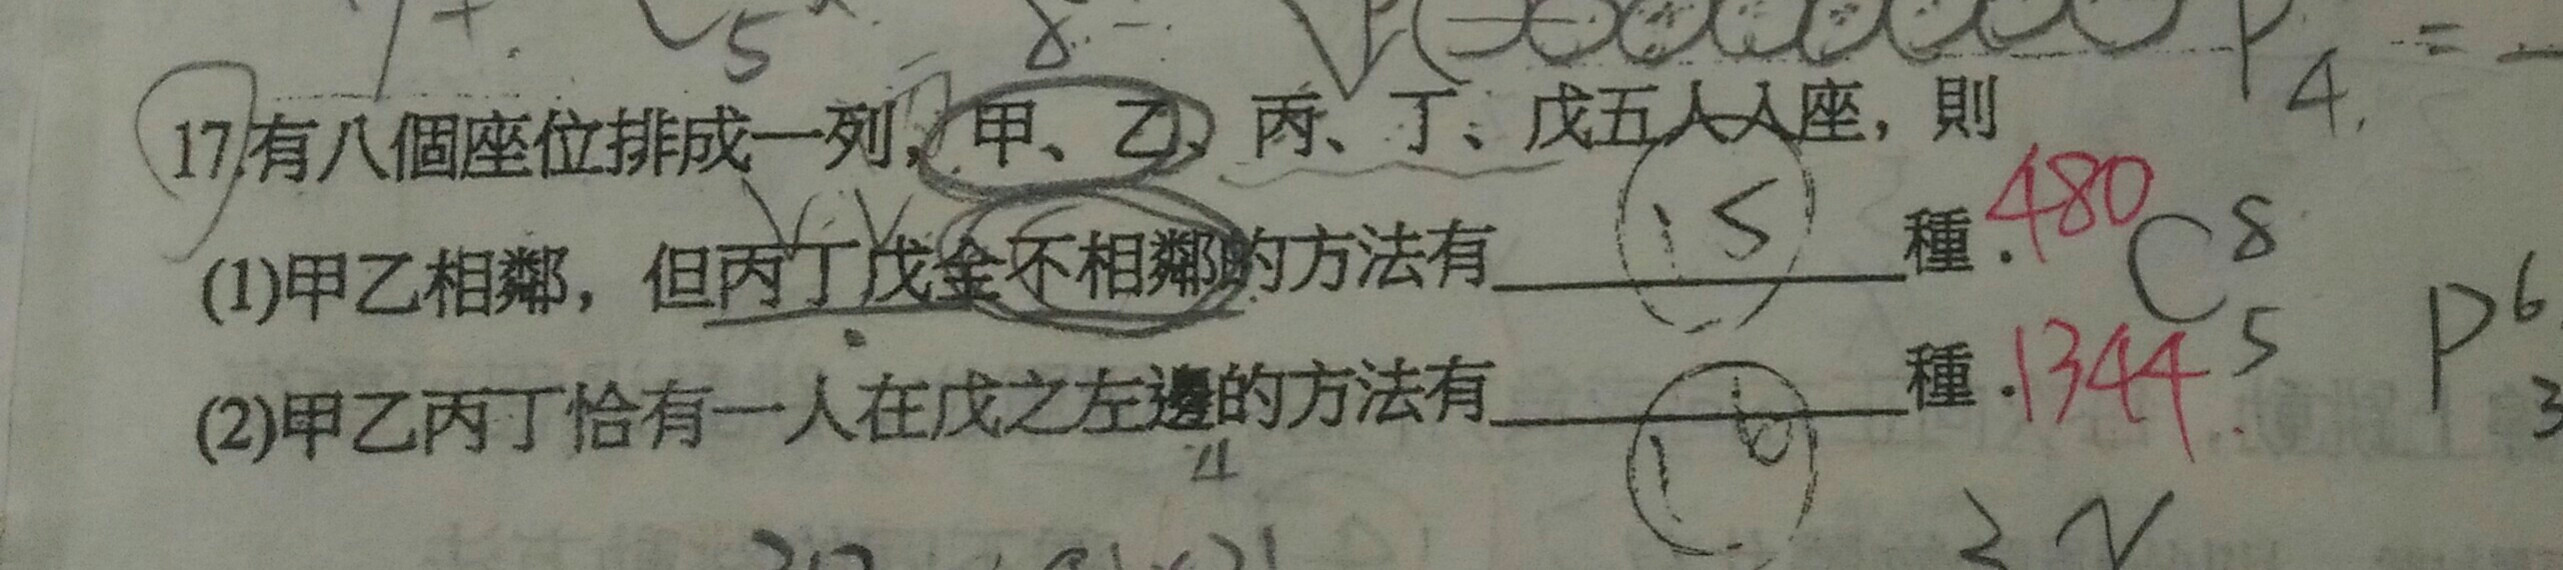 5 8 P 4 =
17.有八個座位排成一列,甲、乙、丙、丁、戊五人入座,則
(1)甲乙相鄰,但丙丁戊全不相鄰的方法有 15 種. 480 C 8 5 P 6 3
(2)甲乙丙丁恰有一人在戊之左邊的方法有 16 種. 1344
4